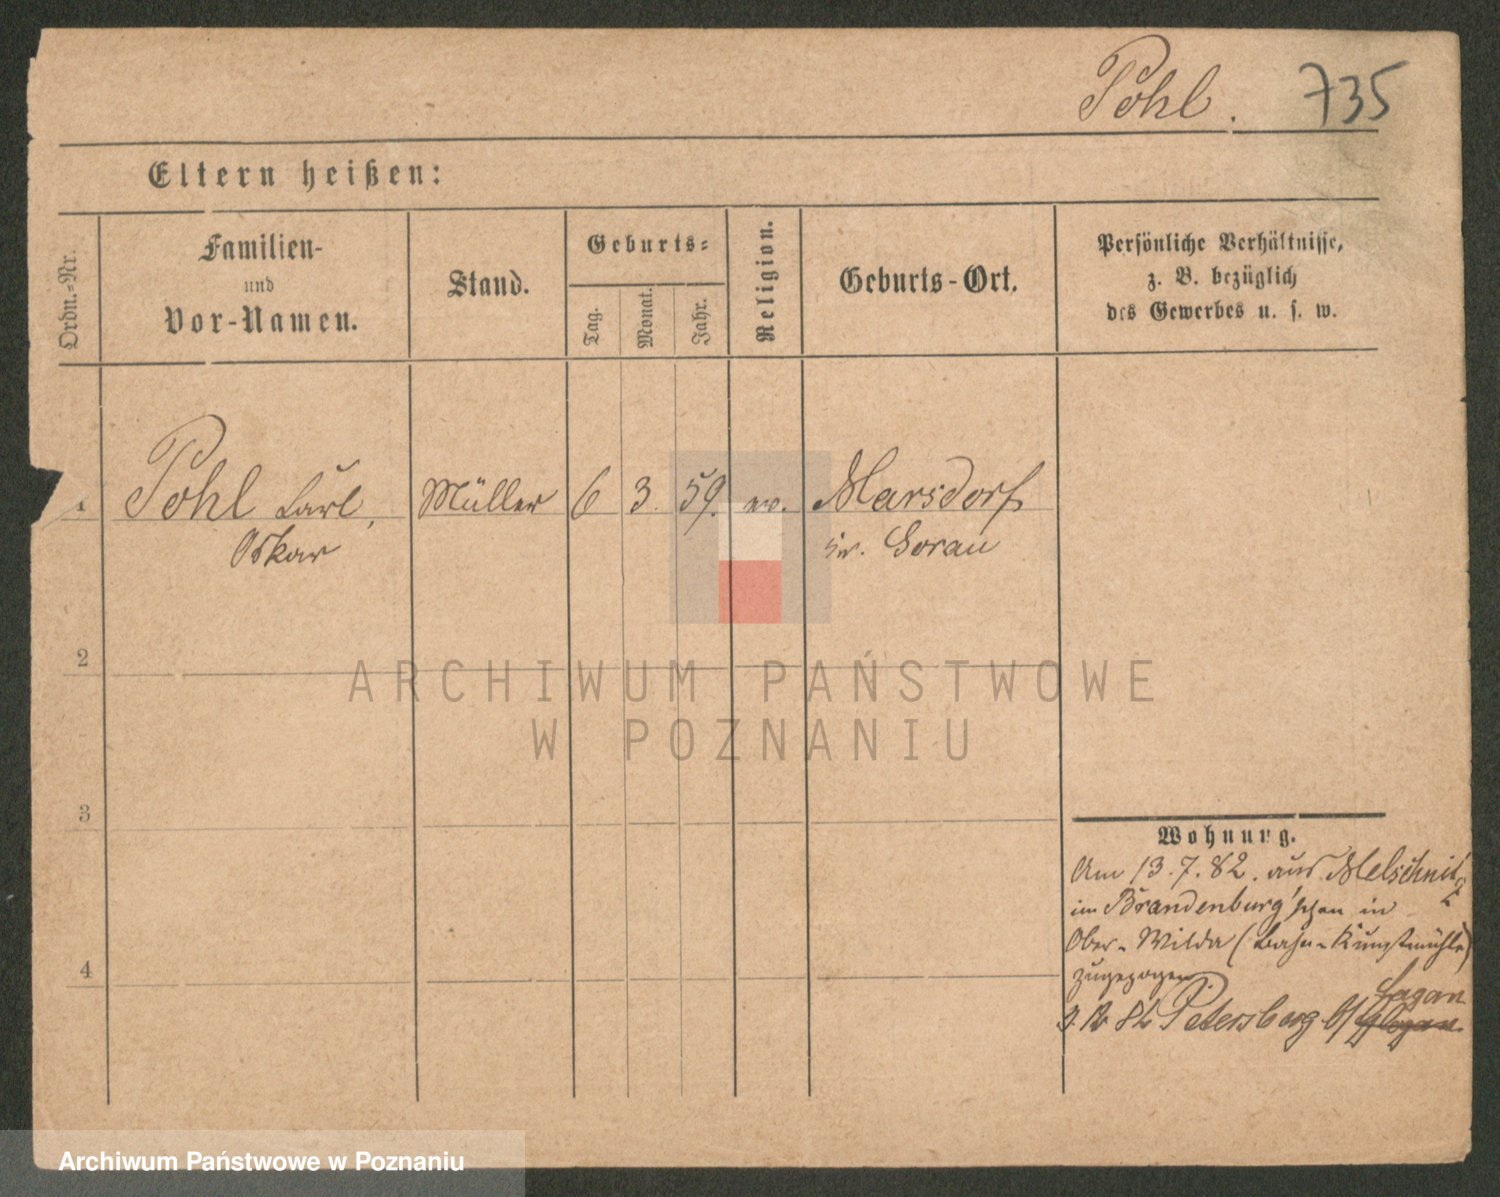 Pohl. 735
Eltern heißen:
Ordn.-Nr.
Familien-
und
Vor-Namen.
Stand.
Geburts-
Tag.
Monat.
Jahr.
Religion.
Geburts-Ort.
Persönliche Verhältnisse,
z. B. bezüglich
des Gewerbes u. s. w.
1 Pohl Carl, Müller 6 3. 59. ev. Marsdorf
Oskar Sorau
2
ARCHIWUM PAŃSTWOWE
W POZNANIU
3
Wohnung.
Am 13.7.82. aus Melschnitz
im Brandenburg'schen in
Ober-Wilda (Bahn-Kunstmühle)
4
zugezogen.
Sagan
82 Petersborg b/ Glogau
Archiwum Państwowe w Poznaniu